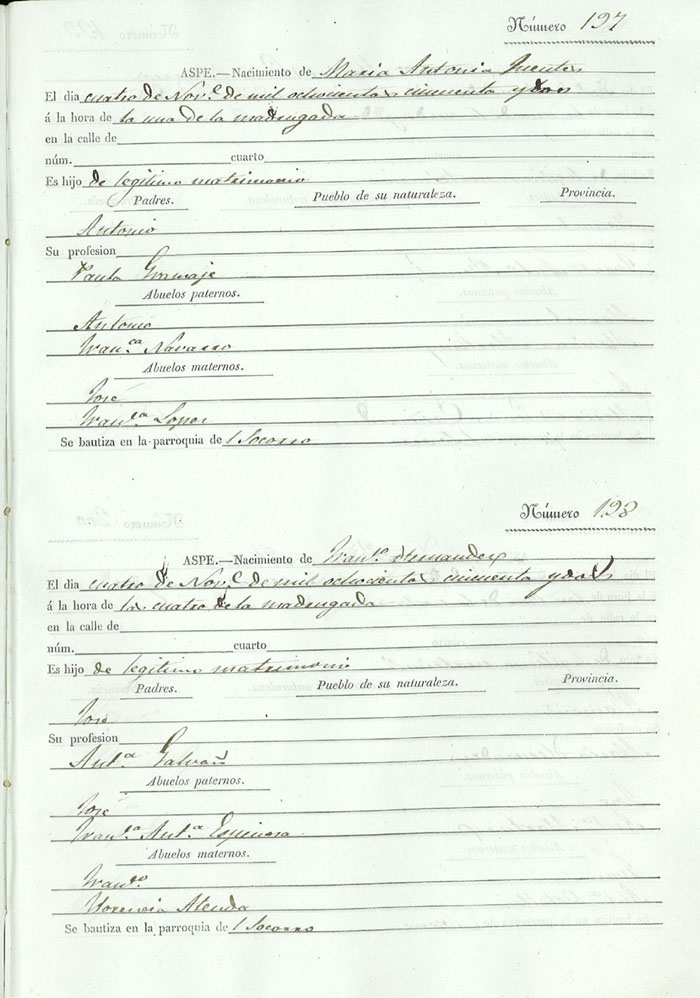 Número 197
ASPE.—Nacimiento de Maria Antonia Fuentes
El dia cuatro de Nov.e de mil ochocientos cincuenta y dos
á la hora de la una de la madrugada
en la calle de
núm. cuarto
Es hijo de legitimo matrimonio
Padres. Pueblo de su naturaleza. Provincia.
Antonio
Su profesion
Paula Gramaje
Abuelos paternos.
Antonio
Fran.ca Navarro
Abuelos maternos.
José
Fran.ca Lopez
Se bautiza en la parroquia de l Socorro
Número 198
ASPE.—Nacimiento de Fran.co Hernandez
El dia cuatro de Nov.e de mil ochocientos cincuenta y dos
á la hora de la cuatro de la madrugada
en la calle de
núm. cuarto
Es hijo de legitimo matrimonio
Padres. Pueblo de su naturaleza. Provincia.
José
Su profesion
Ant.a Galvañ
Abuelos paternos.
José
Fran.ca Ant.a Espinosa
Abuelos maternos.
Fran.co
Florencia Atenda
Se bautiza en la parroquia de l Socorro